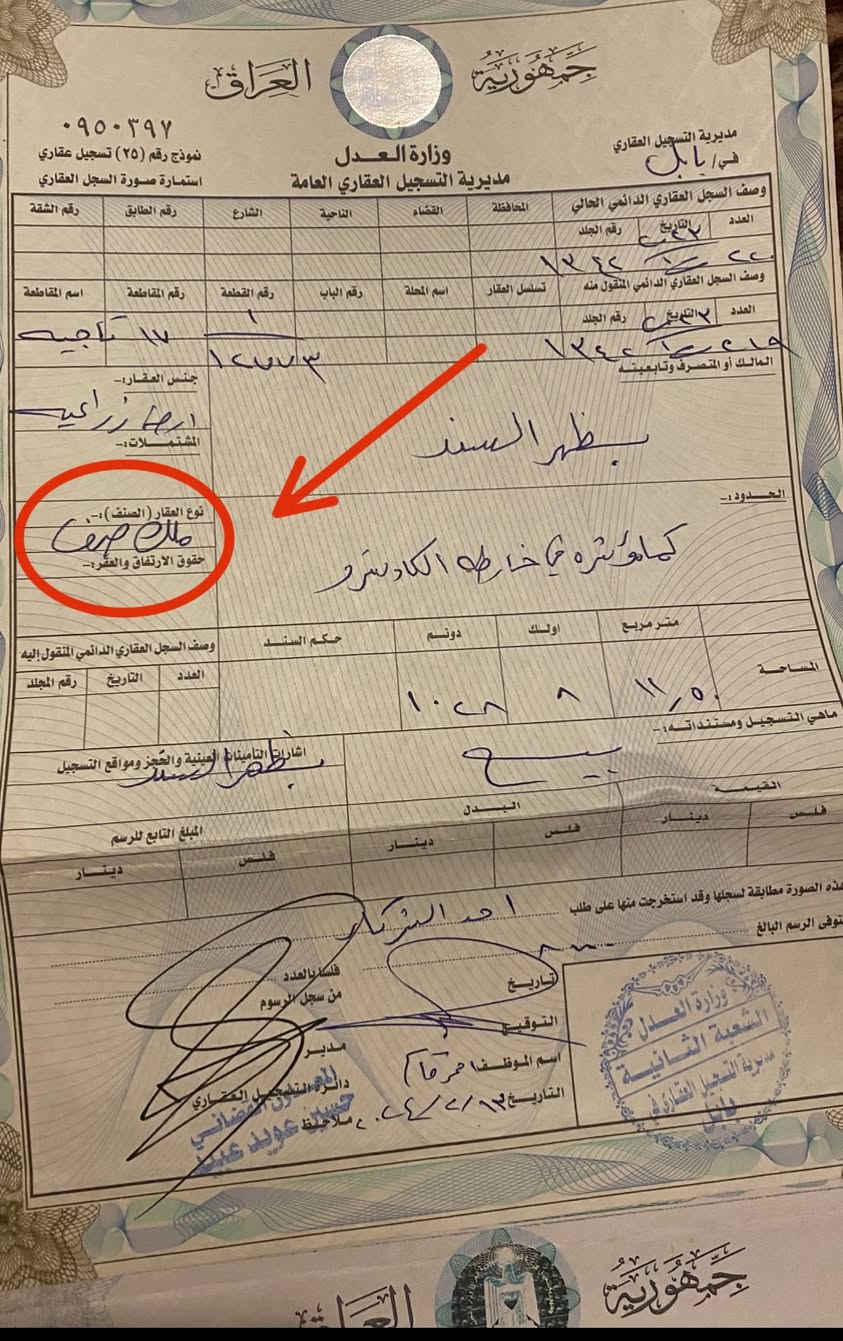 جمهورية العراق
٠٩٥٠٣٩٧
وزارة العدل
مديرية التسجيل العقاري
في/ بابل
نموذج رقم (٢٥) تسجيل عقاري
مديرية التسجيل العقاري العامة
استمارة صورة السجل العقاري
وصف السجل العقاري الدائمي الحالي
المحافظة القضاء الناحية الشارع رقم الطابق رقم الشقة
العدد التاريخ رقم الجلد
وصف السجل العقاري الدائمي المنقول منه
تسلسل العقار اسم المحلة رقم الباب رقم القطعة رقم المقاطعة اسم المقاطعة
العدد التاريخ رقم الجلد
١
١٢٧٧٣
١٧
المالك أو المتصرف وتابعيته
جنس العقار:-
ارض زراعية
بظهر السند
المشتملات:-
الحدود:-
نوع العقار (الصنف):-
ملك صرف
كما مؤشره في خارطة الكادسترو
حقوق الارتفاق والعقر:-
متر مربع اولك دونم حكم السند
وصف السجل العقاري الدائمي المنقول إليه
المساحة
العدد التاريخ رقم المجلد
١١/٥٠ ٨ ١٠٢٨
ماهي التسجيل ومستنداته:-
بيع
اشارات التأمينات العينية والحجز ومواقع التسجيل
بظهر السند
القيمة
البدل
المبلغ التابع للرسم
فلس دينار فلس دينار فلس دينار
هذه الصورة مطابقة لسجلها وقد استخرجت منها على طلب احد الشركاء
توفى الرسم البالغ
فلسا بالعدد
تاريخ
من سجل الرسوم
التوقيع
مدير
اسم الموظف
دائرة التسجيل العقاري
التاريخ ٢٠٢٤/٢/١٣
ملاحظ
المعاون القضائي
حسين عويد عبد
وزارة العدل
الشعبة الثانية
مديرية التسجيل العقاري في
بابل
جمهورية العراق